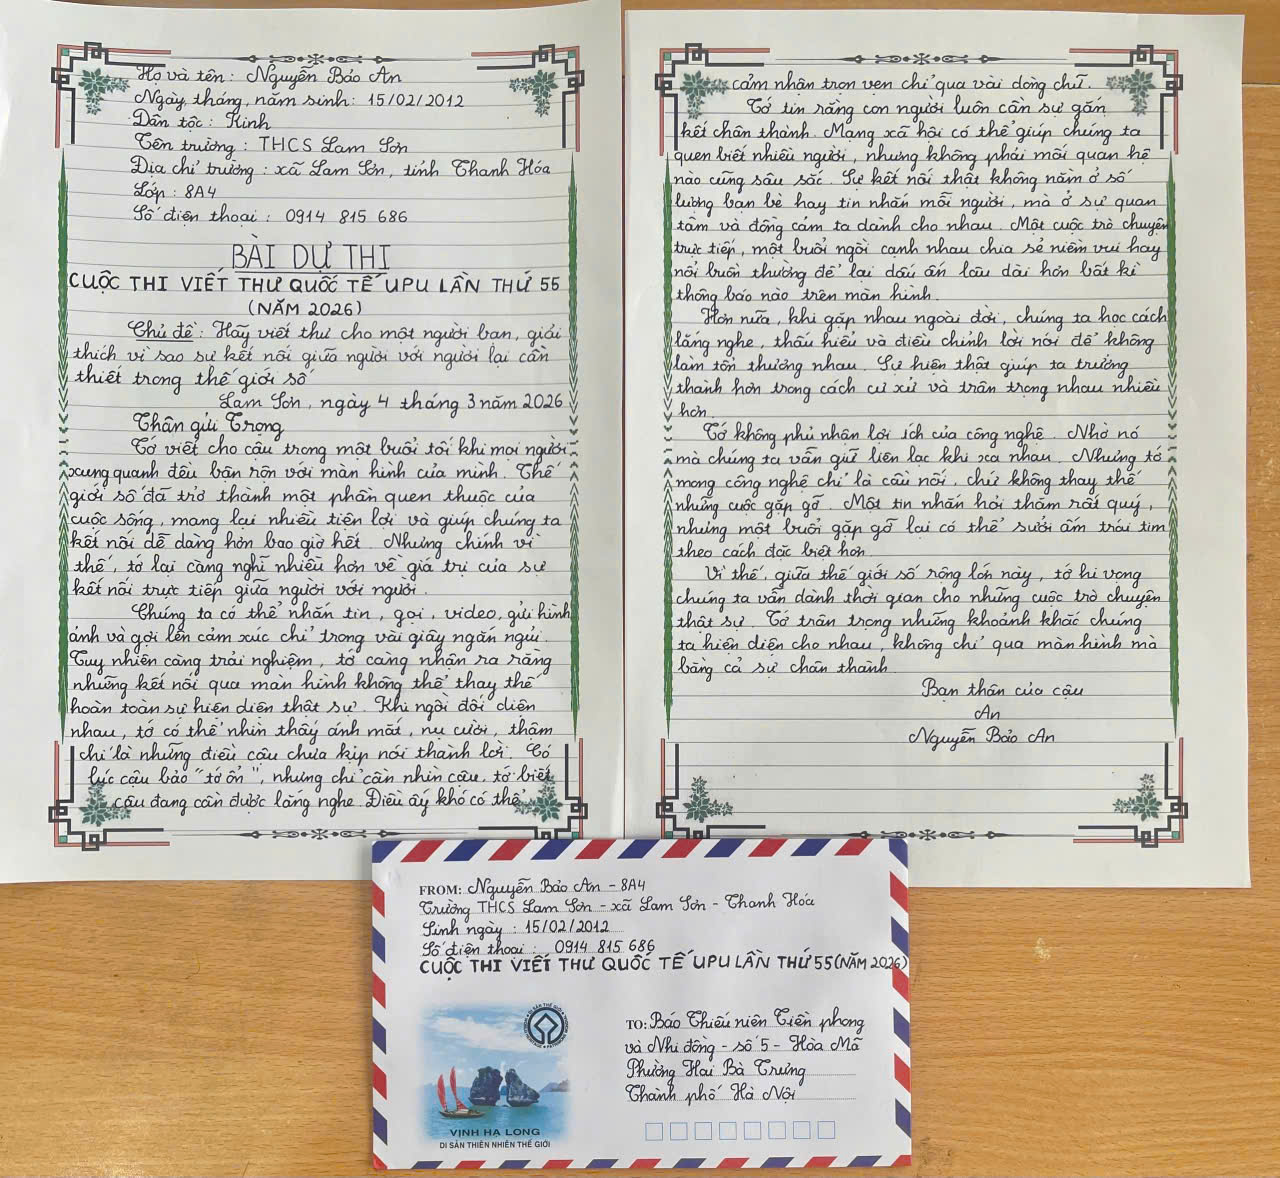 Họ và tên: Nguyễn Bảo An
Ngày, tháng, năm sinh: 15/02/2012
Dân tộc: Kinh
Tên trường: THCS Lam Sơn
Địa chỉ trường: xã Lam Sơn, tỉnh Thanh Hóa
Lớp: 8A4
Số điện thoại: 0914 815 686
BÀI DỰ THI
CUỘC THI VIẾT THƯ QUỐC TẾ UPU LẦN THỨ 55
(NĂM 2026)
Chủ đề: Hãy viết thư cho một người bạn, giải
thích vì sao sự kết nối giữa người với người lại cần
thiết trong thế giới số
Lam Sơn, ngày 4 tháng 3 năm 2026
Thân gửi Trọng
Tớ viết cho cậu trong một buổi tối khi mọi người
xung quanh đều bận rộn với màn hình của mình. Thế
giới số đã trở thành một phần quen thuộc của
cuộc sống, mang lại nhiều tiện lợi và giúp chúng ta
kết nối dễ dàng hơn bao giờ hết. Nhưng chính vì
thế, tớ lại càng nghĩ nhiều hơn về giá trị của sự
kết nối trực tiếp giữa người với người.
Chúng ta có thể nhắn tin, gọi, video, gửi hình
ảnh và gợi lên cảm xúc chỉ trong vài giây ngắn ngủi.
Tuy nhiên càng trải nghiệm, tớ càng nhận ra rằng
những kết nối qua màn hình không thể thay thế
hoàn toàn sự hiện diện thật sự. Khi ngồi đối diện
nhau, tớ có thể nhìn thấy ánh mắt, nụ cười, thậm
chí là những điều cậu chưa kịp nói thành lời. Có
lúc cậu bảo "tớ ổn", nhưng chỉ cần nhìn cậu, tớ biết
cậu đang cần được lắng nghe. Điều ấy khó có thể
cảm nhận trọn vẹn chỉ qua vài dòng chữ.
Tớ tin rằng con người luôn cần sự gắn
kết chân thành. Mạng xã hội có thể giúp chúng ta
quen biết nhiều người, nhưng không phải mối quan hệ
nào cũng sâu sắc. Sự kết nối thật không nằm ở số
lượng bạn bè hay tin nhắn mỗi người, mà ở sự quan
tâm và đồng cảm ta dành cho nhau. Một cuộc trò chuyện
trực tiếp, một buổi ngồi cạnh nhau chia sẻ niềm vui hay
nỗi buồn thường để lại dấu ấn lâu dài hơn bất kì
thông báo nào trên màn hình.
Hơn nữa, khi gặp nhau ngoài đời, chúng ta học cách
lắng nghe, thấu hiểu và điều chỉnh lời nói để không
làm tổn thương nhau. Sự hiện thật giúp ta trưởng
thành hơn trong cách cư xử và trân trọng nhau nhiều
hơn.
Tớ không phủ nhận lợi ích của công nghệ. Nhờ nó
mà chúng ta vẫn giữ liên lạc khi xa nhau. Nhưng tớ
mong công nghệ chỉ là cầu nối, chứ không thay thế
những cuộc gặp gỡ. Một tin nhắn hỏi thăm rất quý,
nhưng một buổi gặp gỡ lại có thể sưởi ấm trái tim
theo cách đặc biệt hơn.
Vì thế, giữa thế giới số rộng lớn này, tớ hi vọng
chúng ta vẫn dành thời gian cho những cuộc trò chuyện
thật sự. Tớ trân trọng những khoảnh khắc chúng
ta hiện diện cho nhau, không chỉ qua màn hình mà
bằng cả sự chân thành
Bạn thân của cậu
An
Nguyễn Bảo An
FROM: Nguyễn Bảo An - 8A4
Trường THCS Lam Sơn - xã Lam Sơn - Thanh Hóa
Sinh ngày: 15/02/2012
Số điện thoại: 0914 815 686
CUỘC THI VIẾT THƯ QUỐC TẾ UPU LẦN THỨ 55 (NĂM 2026)
TO: Báo Thiếu niên Tiền phong
và Nhi đồng - số 5 - Hòa Mã
Phường Hai Bà Trưng
Thành phố Hà Nội
VỊNH HẠ LONG
DI SẢN THIÊN NHIÊN THẾ GIỚI